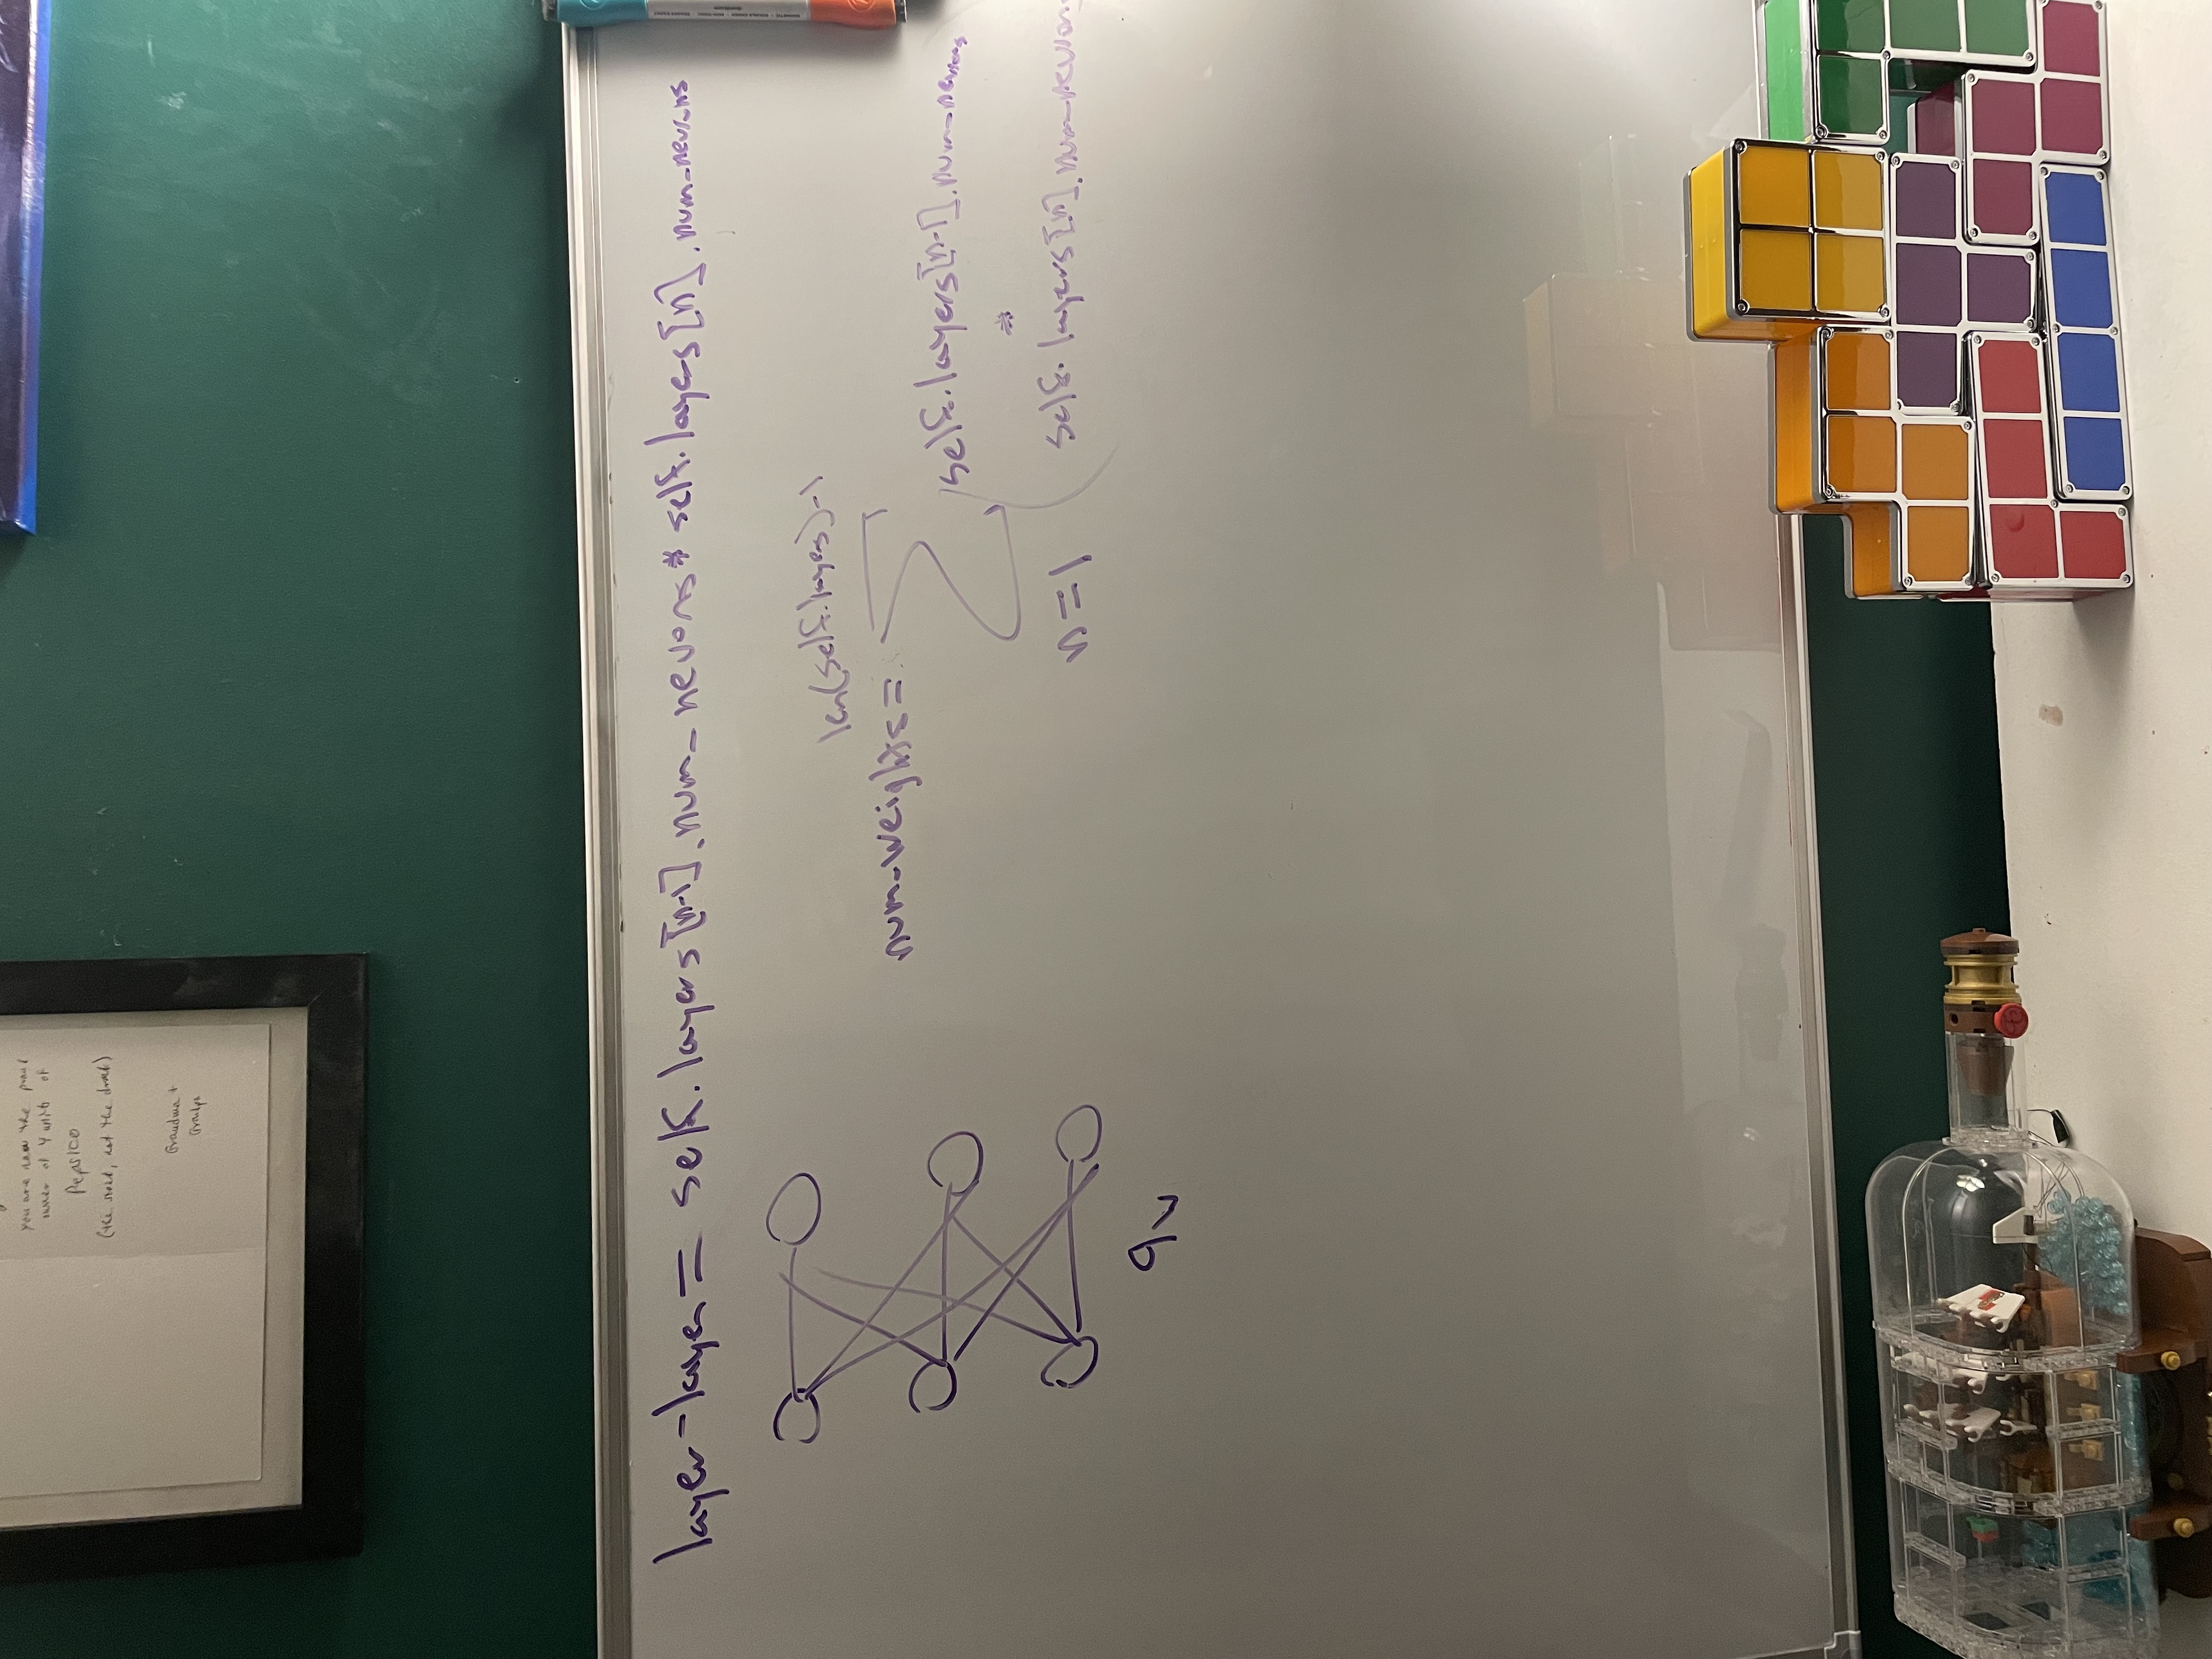 you are now the proud
owner of 4 units of
PepsiCo
(the stock, not the drink)
Grandma +
Grandpa
layer-layer = self.layers[n-1].num_neurons * self.layers[n].num_neurons
len(self.layers)-1
num_weights =
self.layers[n-1].num_neurons
*
n=1
self.layers[n].num_neurons
9w